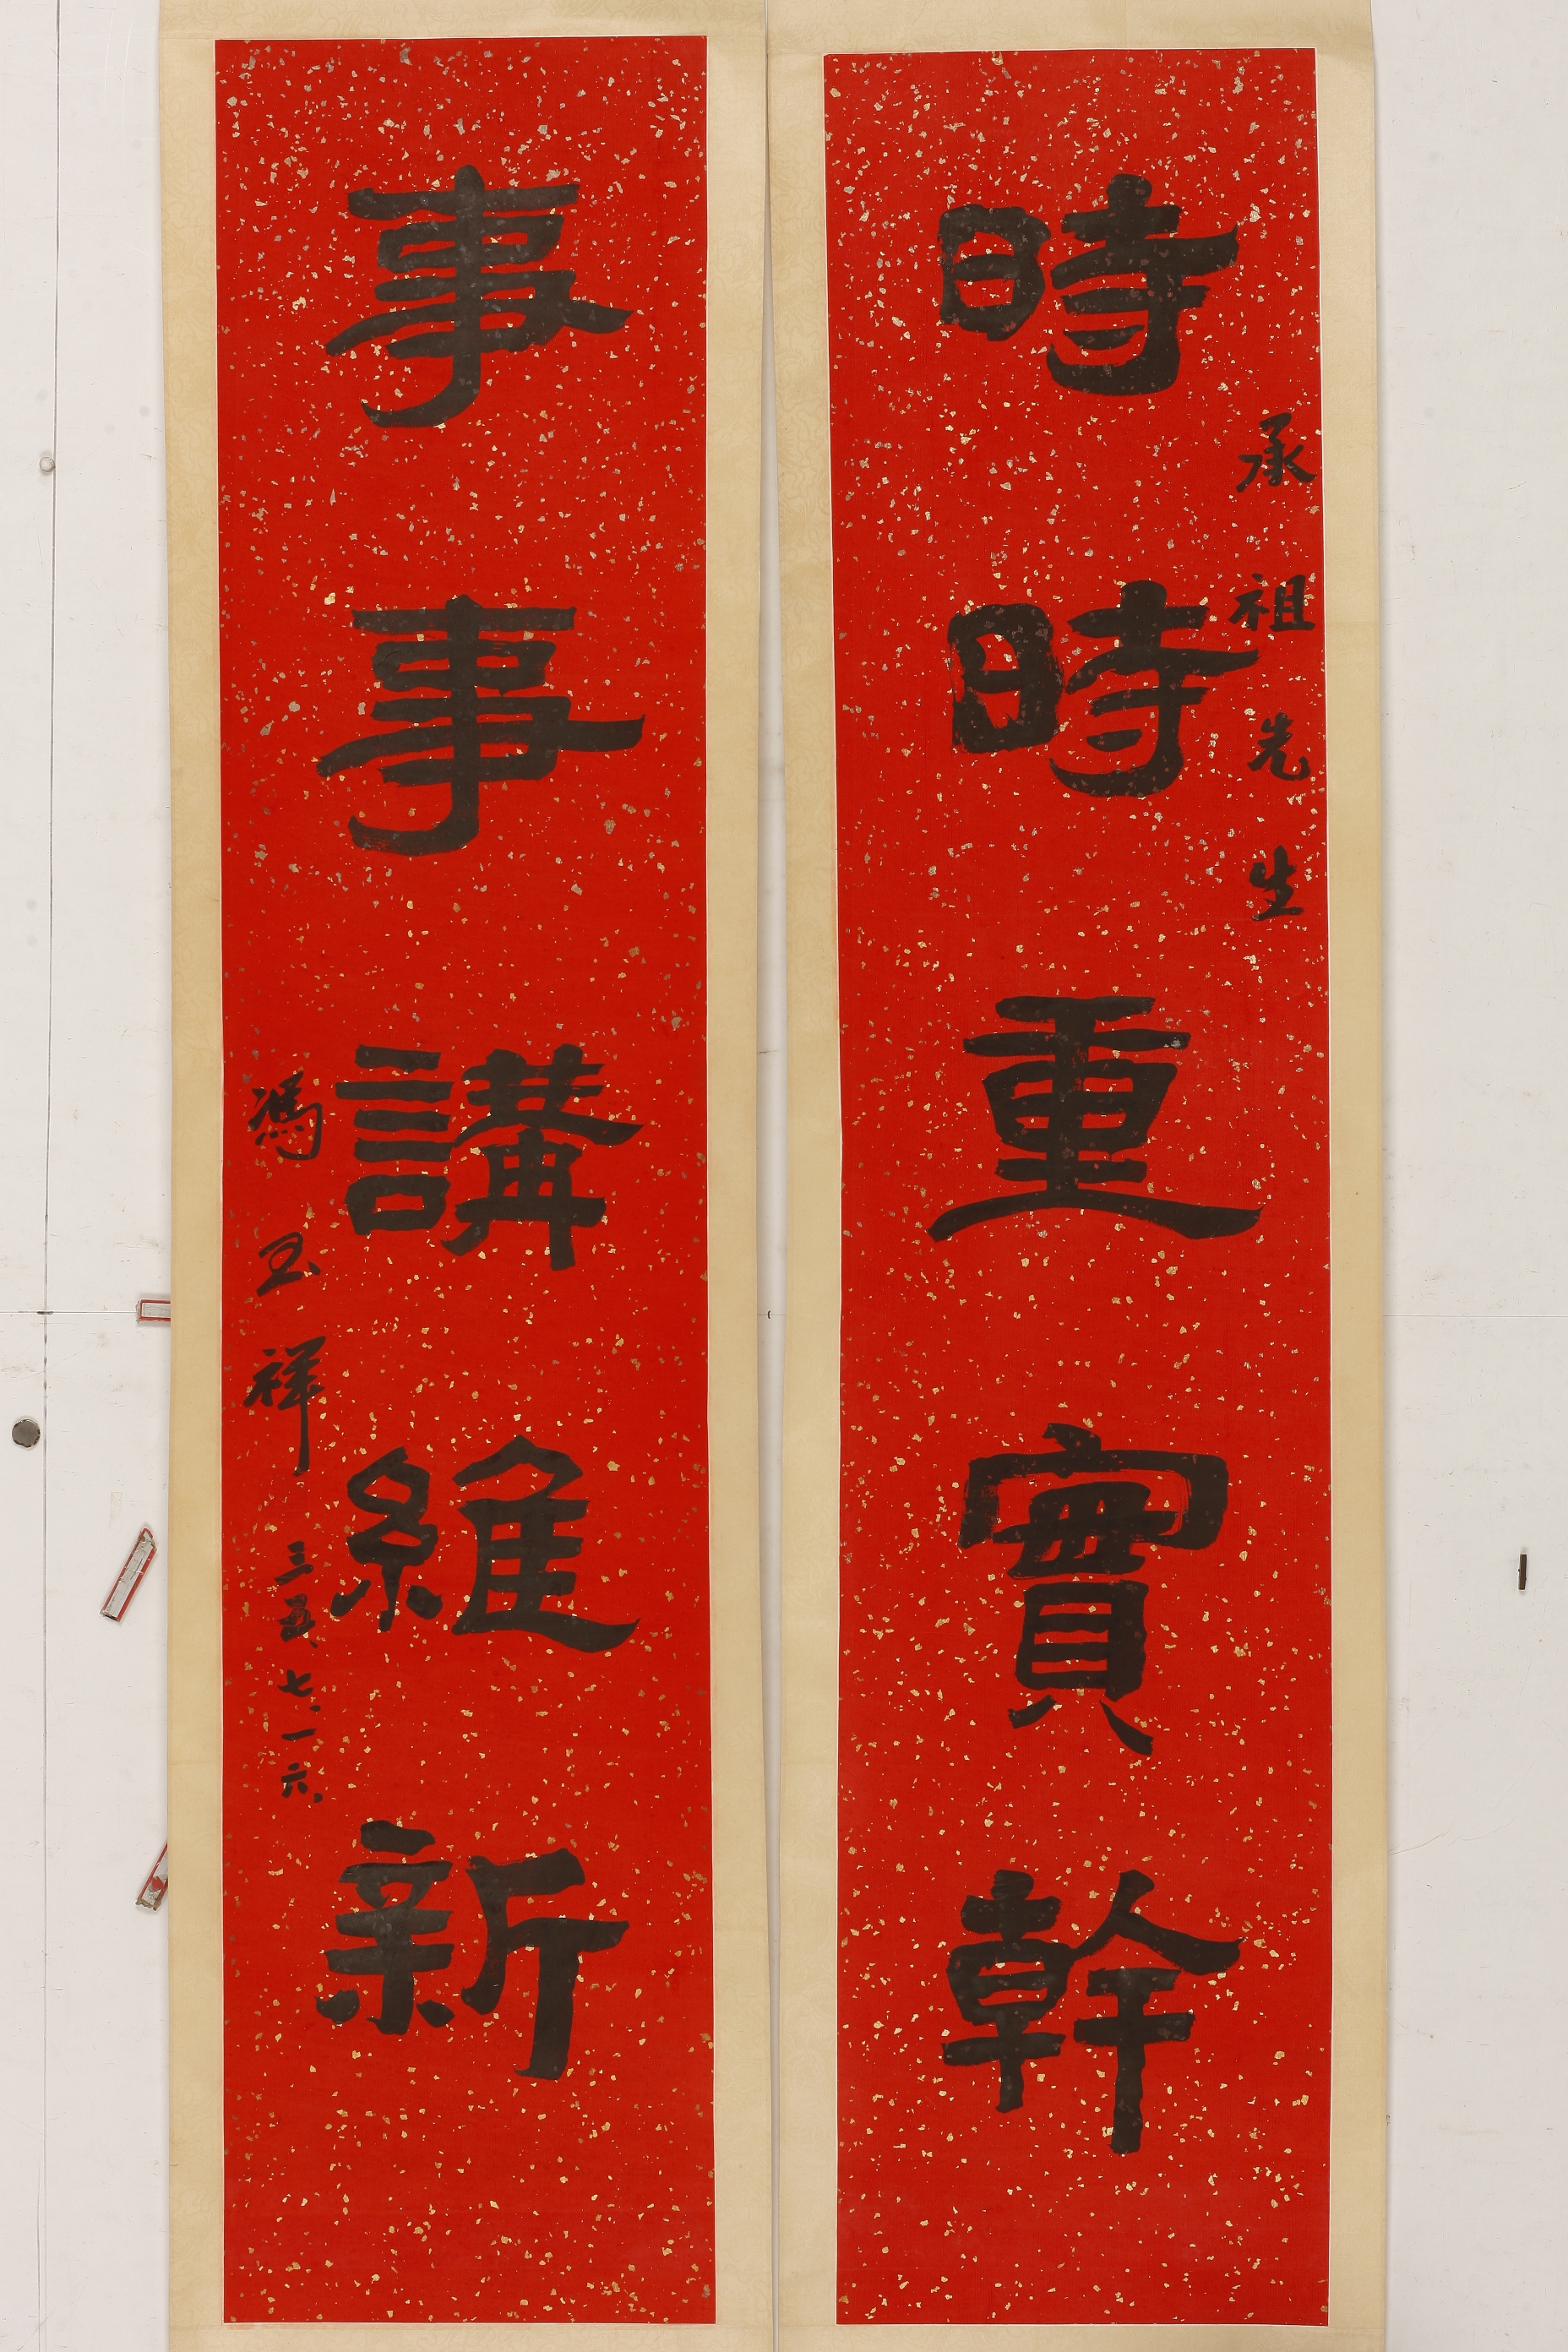 承祖先生
時時重實幹
事事講維新
馮玉祥
三五、七、一六、